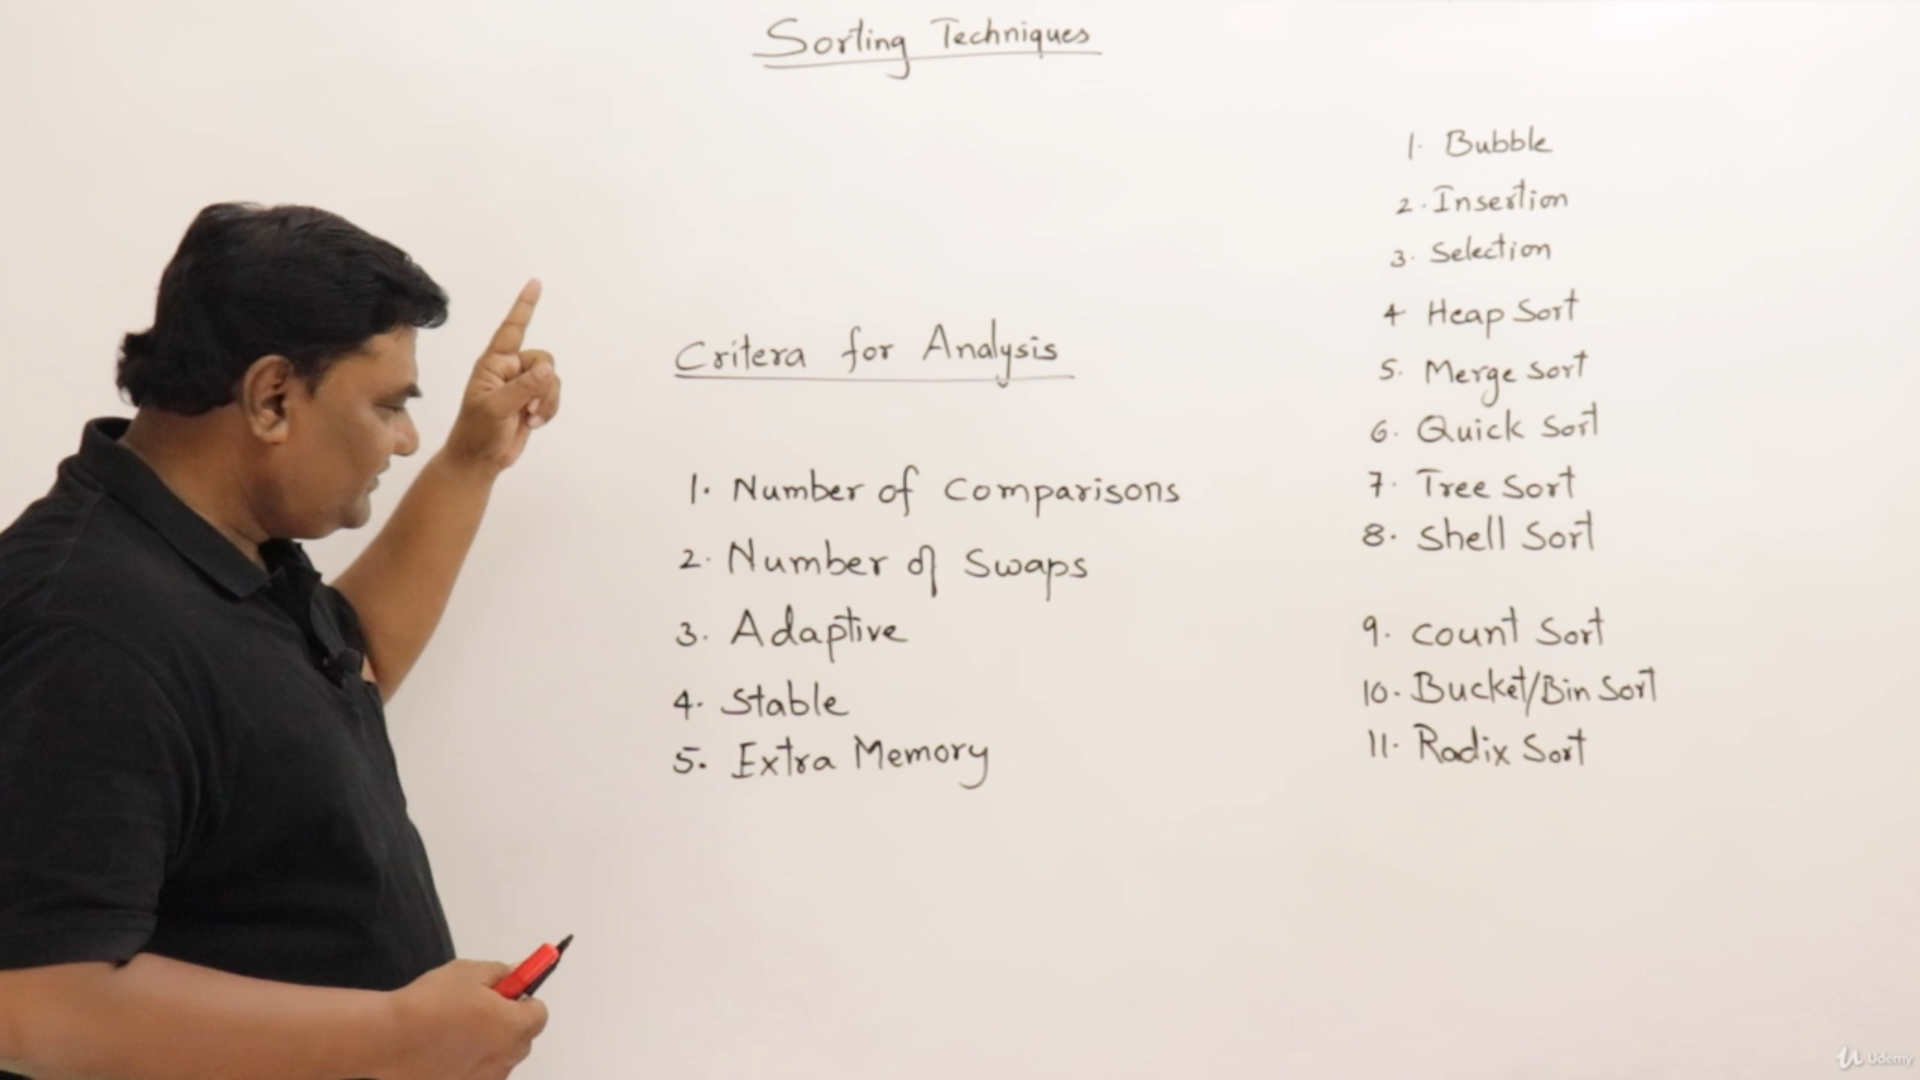 Sorting Techniques
Critera for Analysis
1. Number of Comparisons
2. Number of Swaps
3. Adaptive
4. Stable
5. Extra Memory
1. Bubble
2. Insertion
3. Selection
4 Heap Sort
5. Merge Sort
6. Quick Sort
7. Tree Sort
8. Shell Sort
9. Count Sort
10. Bucket/Bin Sort
11. Radix Sort
Udemy